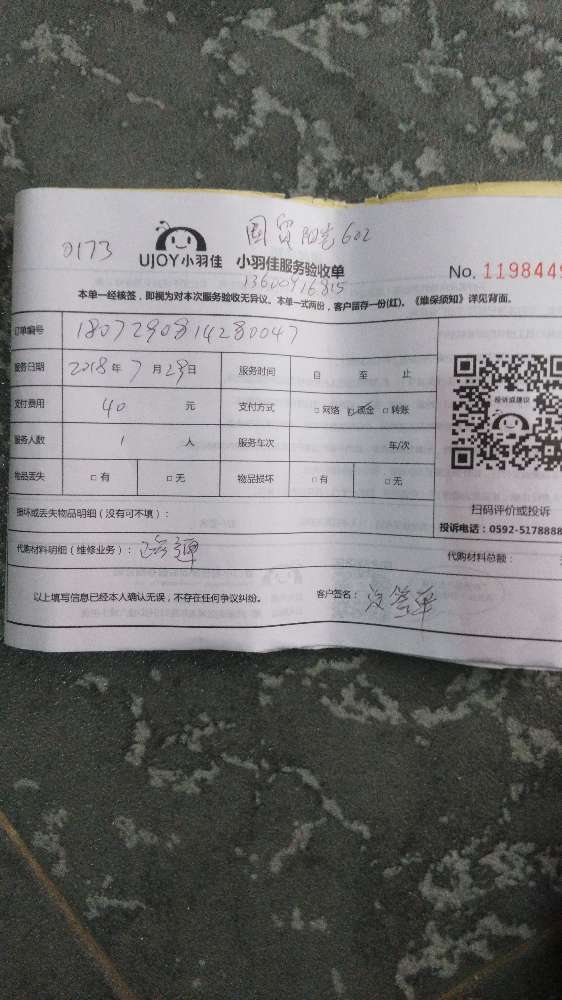 0173
国贸阳光602
UJOY小羽佳 小羽佳服务验收单
No. 1198449
本单一经核签，即视为对本次服务验收无异议。本单一式两份，客户留存一份(红)。《维保须知》详见背面。
订单编号 1807290814280047
服务日期 2018年7月29日 服务时间 自 至 止
支付费用 40 元 支付方式 □网络 ☑现金 □转账
服务人数 1 人 服务车次 车/次
物品丢失 □有 □无 物品损坏 □有 □无
投诉或建议
扫码评价或投诉
投诉电话：0592-5178888
损坏或丢失物品明细（没有可不填）：
代购材料明细（维修业务）： 代购材料总额：
以上填写信息已经本人确认无误，不存在任何争议纠纷。 客户签名： 没签单